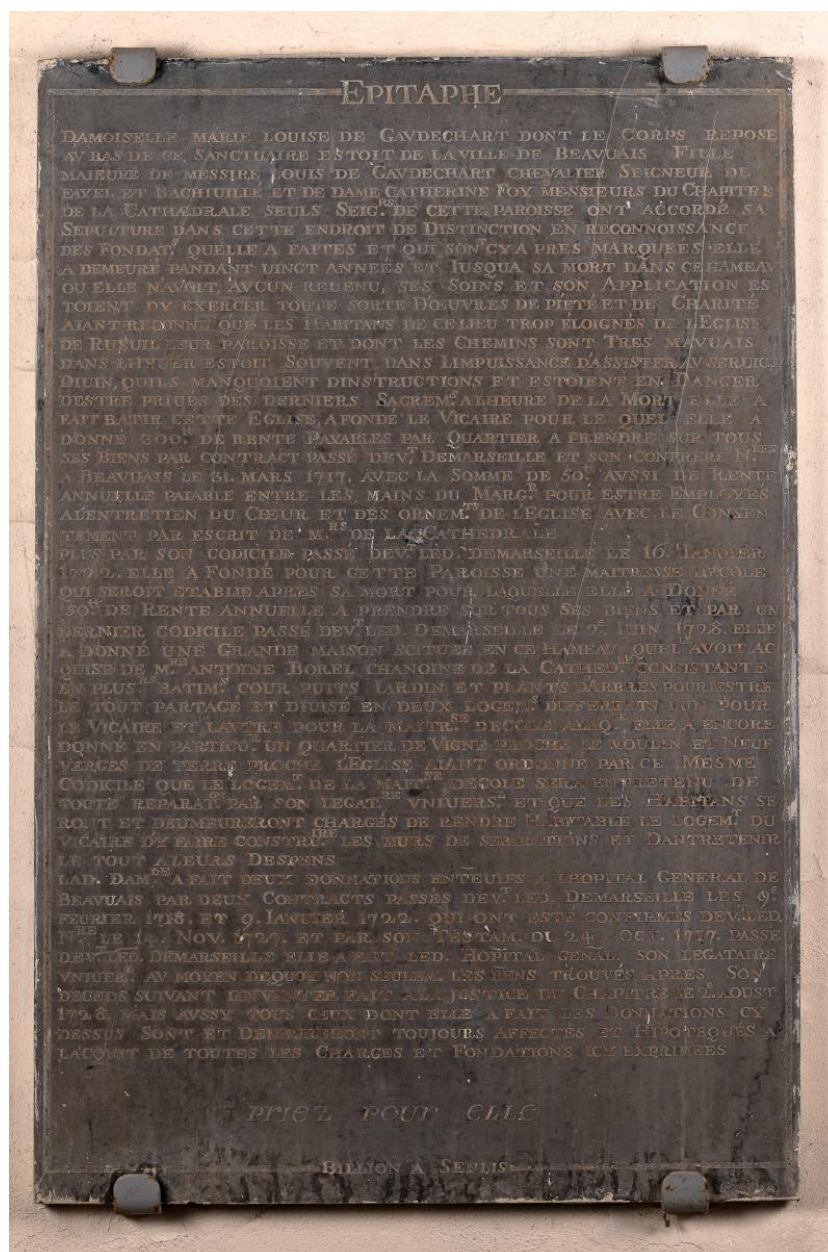 EPITAPHE
DAMOISELLE MARIE LOUISE DE GAVDECHART DONT LE CORPS REPOSE
AV BAS DE CE SANCTUAIRE ESTOIT DE LA VILLE DE BEAVUAIS FILLE
MAJEURE DE MESSIRE LOUIS DE GAVDECHART CHEVALIER SEIGNEUR DE
FAYEL ET BACHIUILLE ET DE DAME CATHERINE FOY MESSIEURS DU CHAPITRE
DE LA CATHEDRALE SEULS SEIG.RS DE CETTE PAROISSE ONT ACCORDÉ SA
SEPULTURE DANS CETTE ENDROIT DE DISTINCTION EN RECONNOISSANCE
DES FONDAT.S QUELLE A FAITES ET QUI SONT CY APRES MARQUEES ELLE
A DEMEURÉ PANDANT UINGT ANNEÉS ET IUSQUA SA MORT DANS CE HAMEAV
OU ELLE NAVOIT AVCUN REUENU, SES SOINS ET SON APPLICATION ES
TOIENT DY EXERCER TOUTE SORTE DŒUVRES DE PIETÉ ET DE CHARITÉ
AIANT REDONNU QUE LES HABITANS DE CE LIEU TROP ELOIGNÉS DE LEGLISE
DE RUEUIL LEUR PAROISSE ET DONT LES CHEMINS SONT TRES MAVUAIS
DANS LHYUER ESTOIT SOUVENT DANS LIMPUISSANCE DASSISTER AV SERUICE
DIUIN, QUILS MANQUOIENT DINSTRUCTIONS ET ESTOIENT EN DANGER
DESTRE PRIUÉS DES DERNIERS SACREM.S ALHEURE DE LA MORT ELLE A
FAIT BATIR CETTE EGLISE, A FONDÉ LE VICAIRE POUR LE QUEL ELLE A
DONNÉ 300.lt DE RENTE PAYABLES PAR QUARTIER A PRENDRE SUR TOUS
SES BIENS PAR CONTRACT PASSÉ DEV.T DEMARSEILLE ET SON CONFRERE N.RES
A BEAVUAIS LE 31. MARS 1717. AVEC LA SOMME DE 50.lt AVSSI DE RENTE
ANNUELLE PAIABLE ENTRE LES MAINS DU MARG.R POUR ESTRE EMPLOYÉS
ALENTRETIEN DU CŒUR ET DES ORNEM.TS DE LEGLISE AVEC LE CONSEN
TEMENT PAR ESCRIT DE M.RS DE LA CATHEDRALE
PLUS PAR SON CODICILE PASSÉ DEV.T LED. DEMARSEILLE LE 16. IANUIER
1722. ELLE A FONDÉ POUR CETTE PAROISSE UNE MAITRESSE DECOLE
QUI SEROIT ETABLIE APRES SA MORT POUR LAQUELLE ELLE A DONNÉ
DE RENTE ANNUELLE A PRENDRE SUR TOUS SES BIENS ET PAR UN
DERNIER CODICILE PASSÉ DEV.T LED. DEMARSEILLE LE 2.e IUIN 1728. ELLE
A DONNÉ UNE GRANDE MAISON SCITUÉE EN CE HAMEAV QUELL AVOIT AC
QUISE DE M.RE ANTOINE BOREL CHANOINE DE LA CATHED.LE CONSISTANTE
EN PLUS.RS BATIM.S COUR PUITS IARDIN ET PLANTS DARBRES POUR ESTRE
LE TOUT PARTAGÉ ET DIUISÉ EN DEUX LOGEM.S DIFFERENTS LUN POUR
LE VICAIRE ET LAVTRE POUR LA MAITR.SE DECOLE ALAQ.E ELLE A ENCORE
DONNÉ EN PARTICU.R UN QUARTIER DE VIGNE PROCHE LE MOULIN ET NEUF
VERGES DE TERRE PROCHE LEGLISE AIANT ORDONNÉ PAR CE MESME
CODICILE QUE LE LOGEM.T DE LA MAITR.SE DECOLE SERA ENTRETENU DE
TOUTE REPARAT. PAR SON LEGAT.RE VNIUERS. ET QUE LES HABITANS SE
RONT ET DEUMEURERONT CHARGÉS DE RENDRE HABITABLE LE LOGEM.T DU
VICAIRE DY FAIRE CONSTRU.IRE LES MURS DE SEPARATIONS ET DANTRETENIR
LE TOUT A LEURS DESPENS
LAD. DAM.LE A FAIT DEUX DONNATIONS ENTEUIFS A LHOPITAL GENERAL DE
BEAVUAIS PAR DEUX CONTRACTS PASSÉS DEV.T LED. DEMARSEILLE LES 9.e
FEURIER 1718. ET 9. IANUIER 1722. QUI ONT ESTÉ CONFIRMÉS DEV. LED.
N.RE LE 14. NOV. 1727. ET PAR SON TESTAM. DU 24. OCT. 1717. PASSÉ
DEV.T LED. DEMARSEILLE ELLE A FAIT LED. HOPITAL GENAL. SON LEGATAIRE
VNIUER. AV MOYEN DEQUOY NON SEULEM. LES BIENS TROUVÉS APRES SON
DECEDS SUIVANT LINVENTER FAIT A LA JUSTICE DU CHAPITRE LE 2. AOUST
1728, MAIS AVSSY TOUS CEUX DONT ELLE A FAIT LES DONNATIONS CY
DESSUS SONT ET DEMEURERONT TOUJOURS AFFECTÉS ET HIPOTEQUÉS A
LACQUIT DE TOUTES LES CHARGES ET FONDATIONS ICY EXPRIMEES
PRIEZ POUR ELLE
BILLION A SENLIS